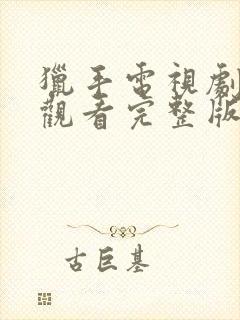 獵手電視劇
觀看完整版
古巨基